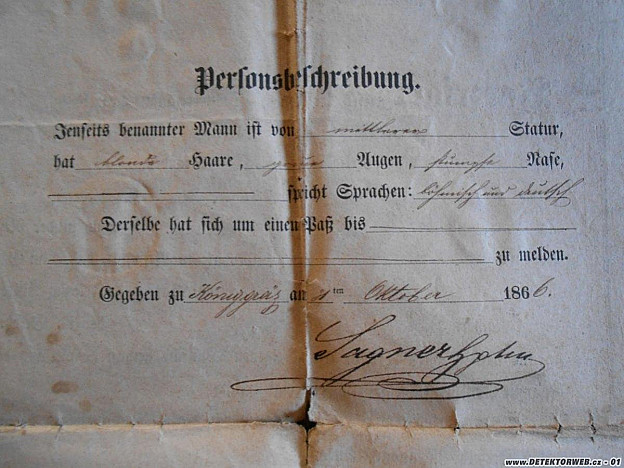 Personsbeschreibung.
Jenseits benannter Mann ist von mittlerer Statur,
hat blonde Haare, graue Augen, stumpfe Nase,
spricht Sprachen: böhmisch und deutsch
Derselbe hat sich um einen Paß bis
zu melden.
Gegeben zu Königgrätz am ten Oktober 1866.
Sagner
www.DETEKTORWEB.cz - 01